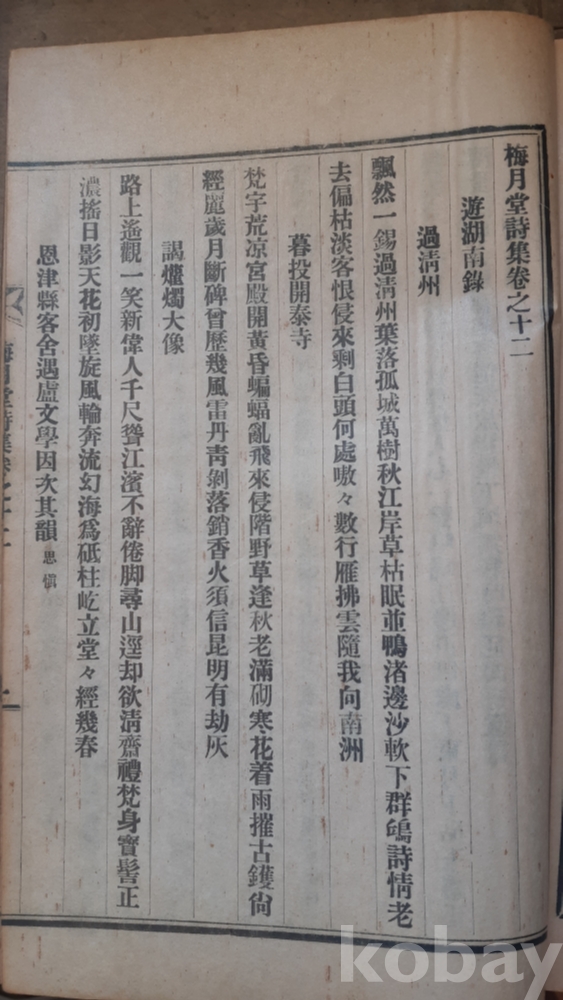 梅月堂詩集卷之十二
遊湖南錄
過淸州
飄然一錫過淸州葉落孤城萬樹秋江岸草枯眠並鴨渚邊沙軟下群鴭詩情老
去偏枯淡客恨侵來剩白頭何處嗷々數行雁拂雲隨我向南洲
暮投開泰寺
梵宇荒凉宮殿開黃昏蝙蝠亂飛來侵階野草逢秋老滿砌寒花着雨摧古鑊尙
經麗歲月斷碑曾歷幾風雷丹靑剝落銷香火須信昆明有劫灰
謁燈燭大像
路上遙觀一笑新偉人千尺聳江濱不辭倦脚尋山逕却欲淸齋禮梵身寶髻正
濃搖日影天花初墜旋風輪奔流幻海爲砥柱屹立堂々經幾春
恩津縣客舍遇盧文學因次其韻 思愼
梅月堂詩集卷之十二
kobay